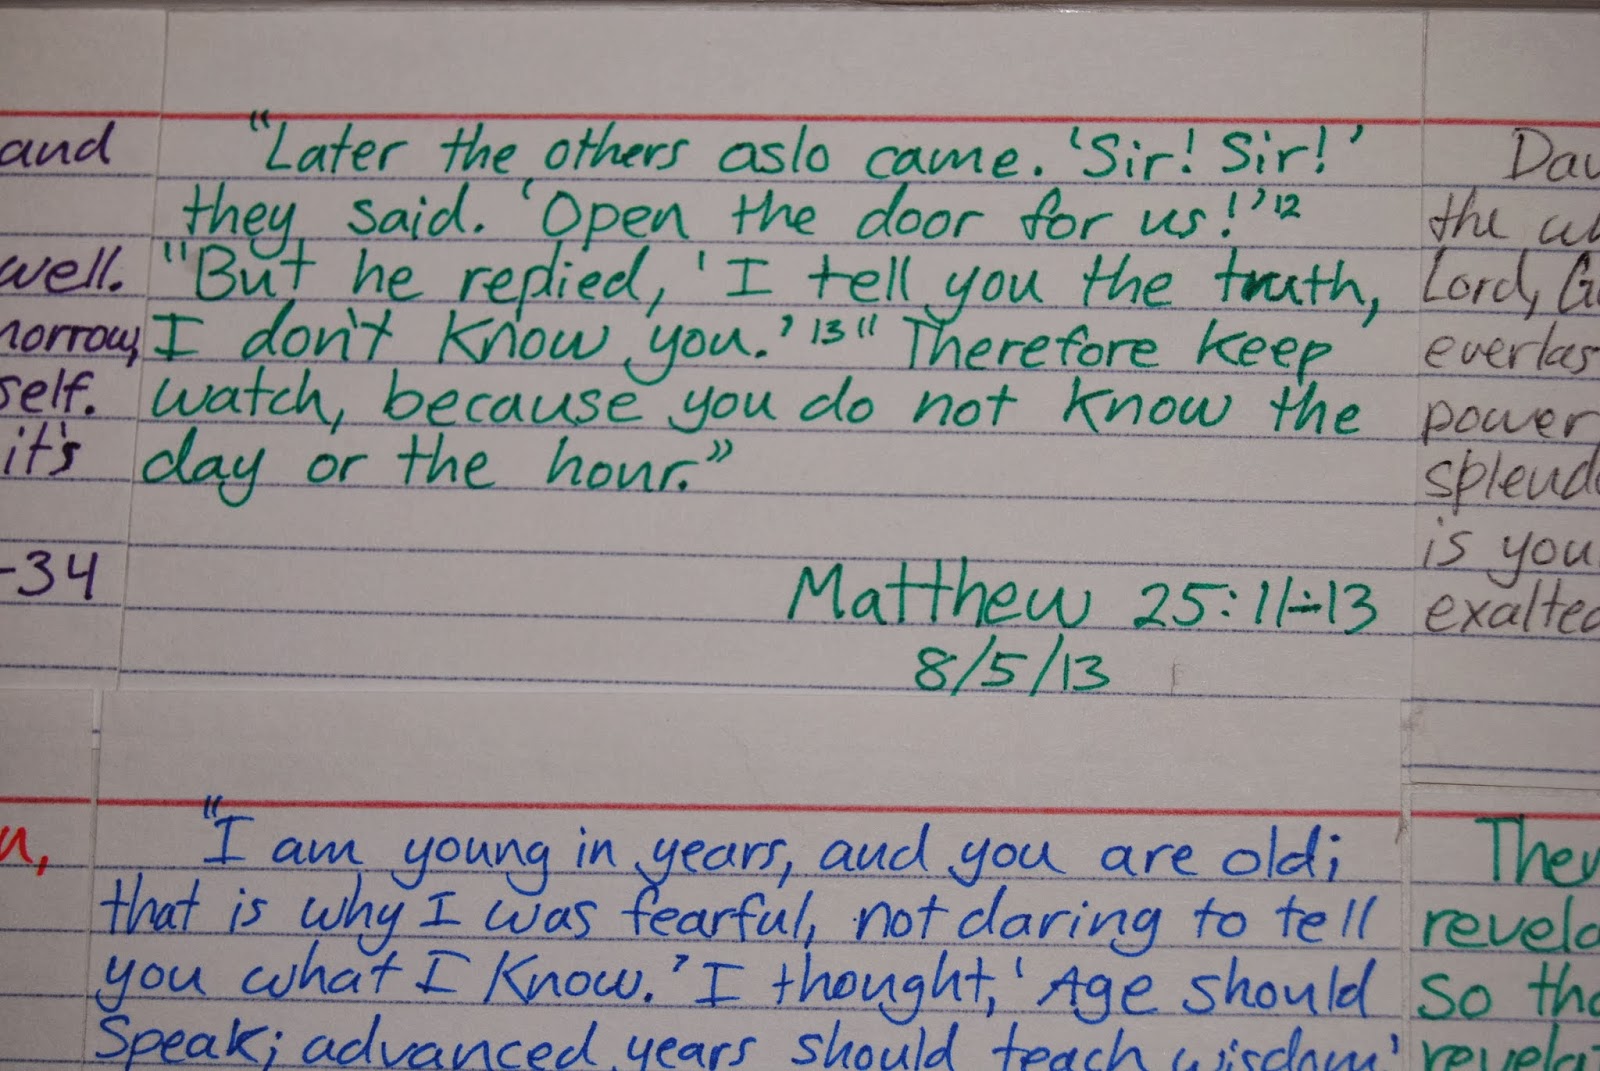 "Later the others aslo came. 'Sir! Sir!'
they said. 'Open the door for us!' 12
"But he replied, 'I tell you the truth,
I don't know you.' 13 "Therefore keep
watch, because you do not know the
day or the hour."
Matthew 25:11-13
8/5/13
and
well.
morrow,
self.
it's
-34
the
Lord,
everlas
power
splend
is you
exalted
"I am young in years, and you are old;
that is why I was fearful, not daring to tell
you what I know.' I thought, 'Age should
speak; advanced years should teach wisdom'
They
revela
so tha
revelat